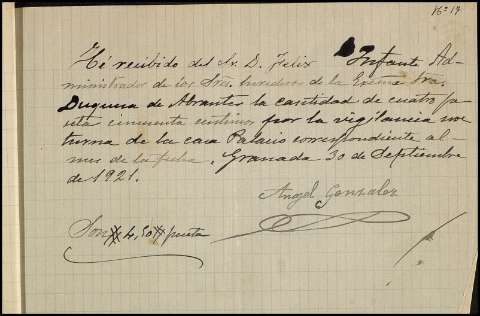 Nº 19
He recibido del Sr. D. Felix Infante Ad-
ministrador de los Srs. herederos de la Excma Sra.
Duquesa de Abrantes la cantidad de cuatro pe-
setas cincuenta centimos, por la vigilancia noc
turna de la casa Palacio correspondiente al
mes de la fecha. Granada 30 de Septiembre
de 1921.
Angel Gonzalez
Son # 4,50 # peseta